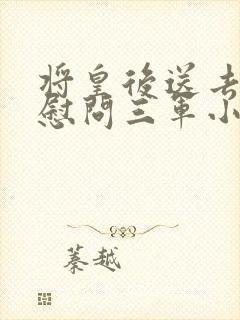 将皇後送去
慰問三軍小
蓁越